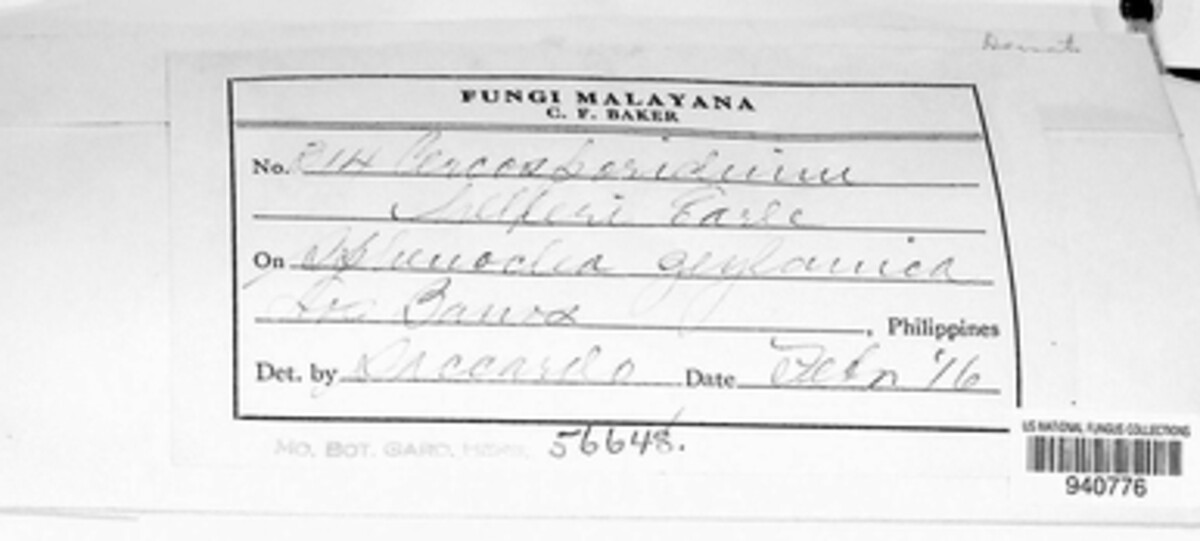 FUNGI MALAYANA
C. F. BAKER
No. 214 Cercosporidium
Helleri Earle
On Sphenoclea zeylanica
Los Banos, Philippines
Det. by Saccardo Date Feb'r '16
MO. BOT. GARD. HERB. 56648.
US NATIONAL FUNGUS COLLECTIONS
940776